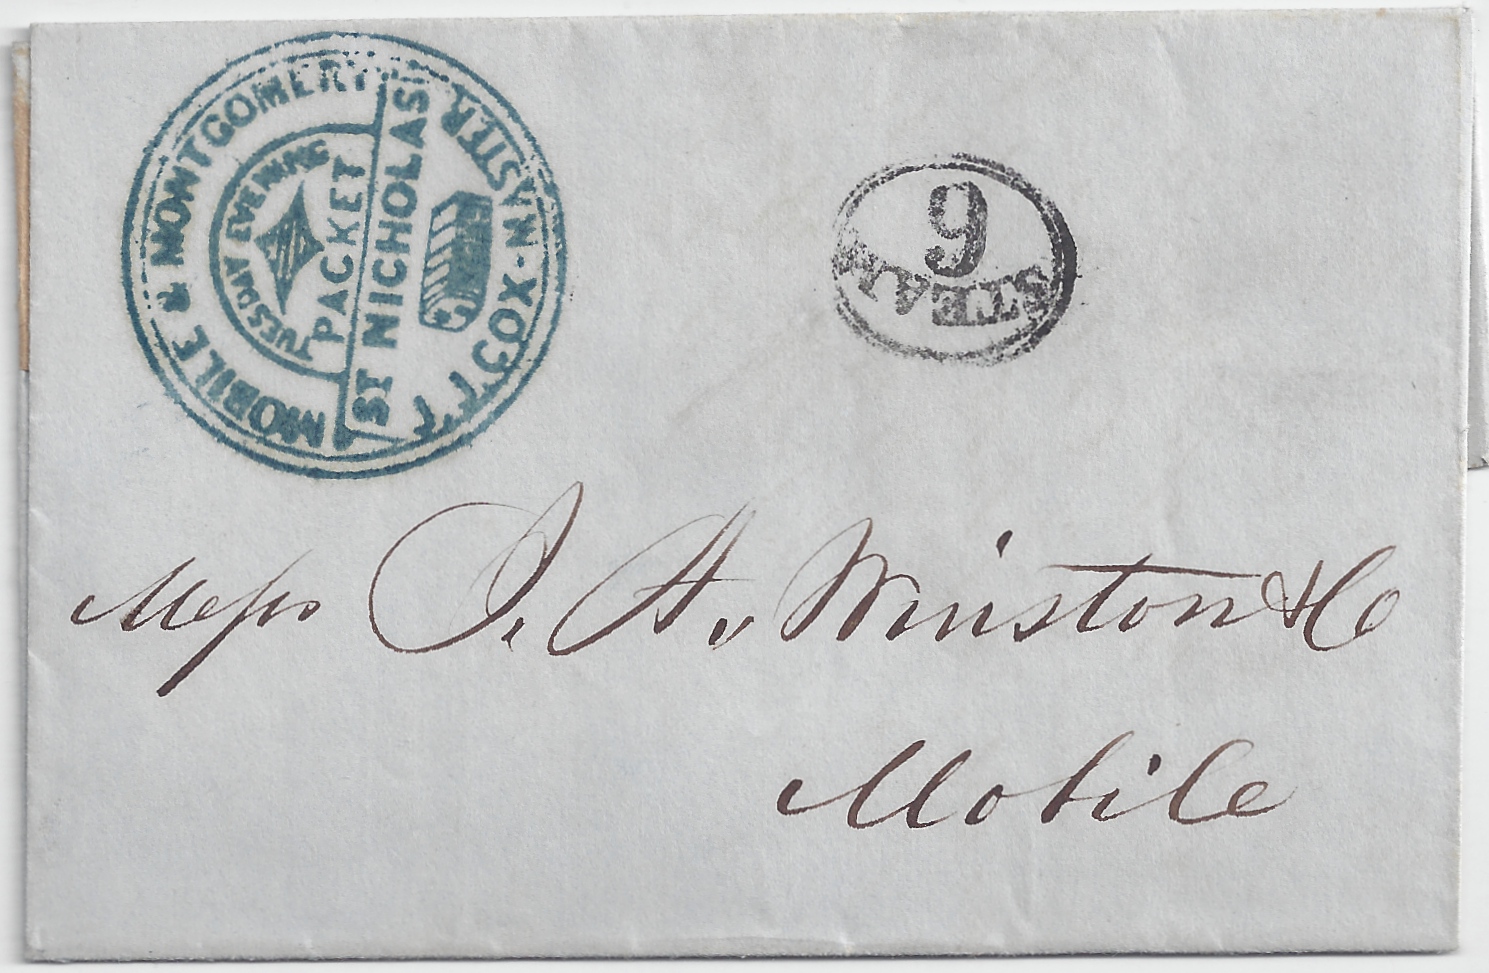 MOBILE & MONTGOMERY
TUESDAY EVENING
PACKET
ST NICHOLAS
COX. MASTER
STEAM
6
Messrs J. A. Winston & Co
Mobile